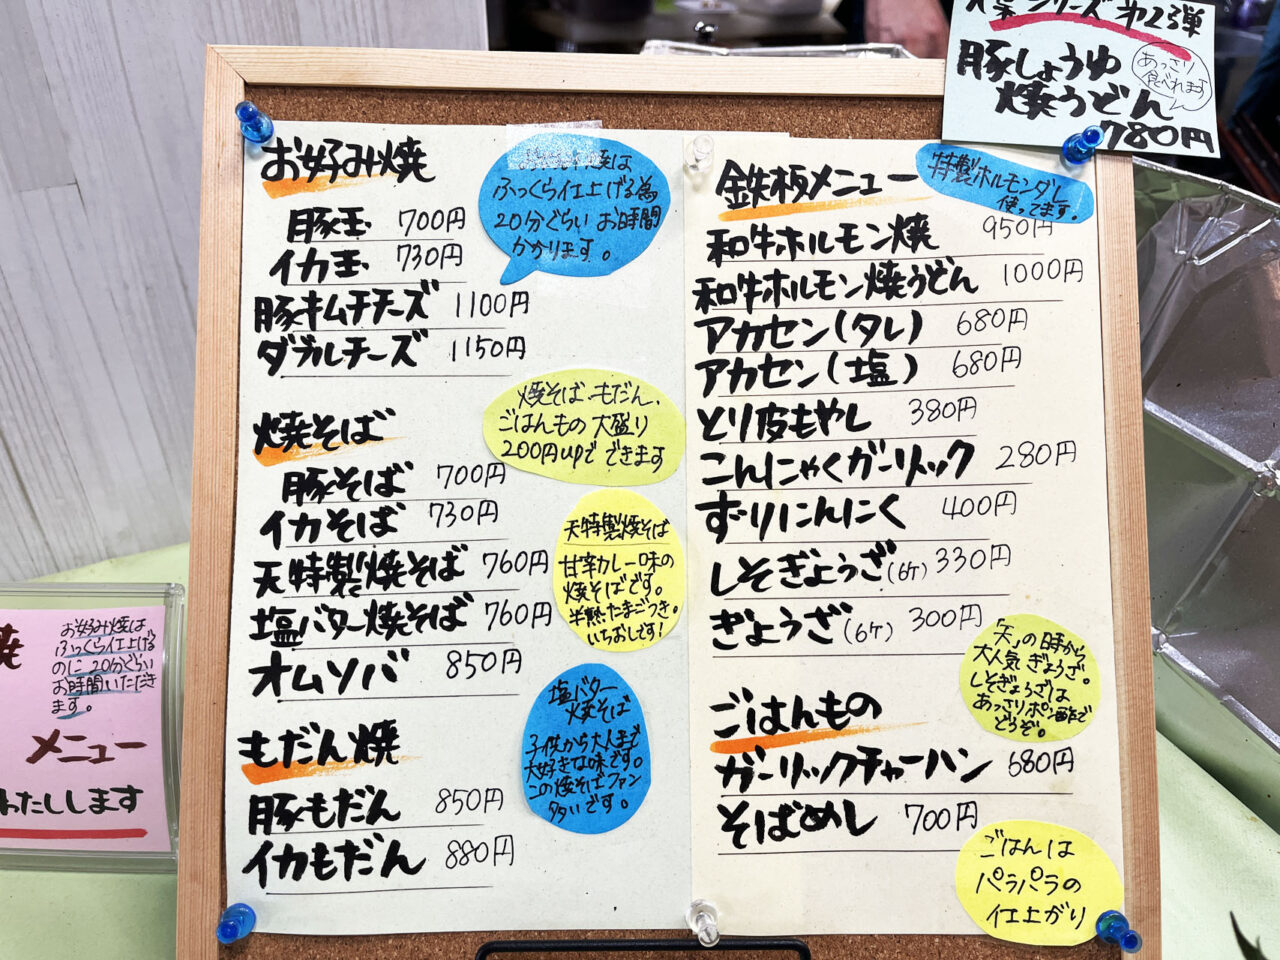 お好み焼
豚玉 700円
イカ玉 730円
豚キムチチーズ 1100円
ダブルチーズ 1150円
焼は
ふっくら仕上げる為
20分ぐらいお時間
かかります。
焼そば
豚そば 700円
イカそば 730円
天特製焼そば 760円
塩バター焼そば 760円
オムソバ 850円
焼そば、もだん、
ごはんもの大盛り
200円upでできます
天特製焼そば
甘辛カレー味の
焼そばです。
半熟たまごつき。
いちおしです!
もだん焼
豚もだん 850円
イカもだん 880円
塩バター
焼そば
子供から大人まで
大好きな味です。
この焼そばファン
多いです。
鉄板メニュー
特製ホルモンダレ
使ってます。
和牛ホルモン焼 950円
和牛ホルモン焼うどん 1000円
アカセン(タレ) 680円
アカセン(塩) 680円
とり皮もやし 380円
こんにゃくガーリック 280円
ずりにんにく 400円
しそぎょうざ(6ケ) 330円
ぎょうざ(6ケ) 300円
「天」の時から
大人気ぎょうざ。
しそぎょうざは
あっさりポン酢で
どうぞ。
ごはんもの
ガーリックチャーハン 680円
そばめし 700円
ごはんは
パラパラの
仕上がり
シリーズ第2弾
豚しょうゆ
焼うどん
780円
あっさり
食べれます
お好み焼は
ふっくら仕上げる
のに20分ぐらい
お時間いただき
ます。
メニュー
わたしします